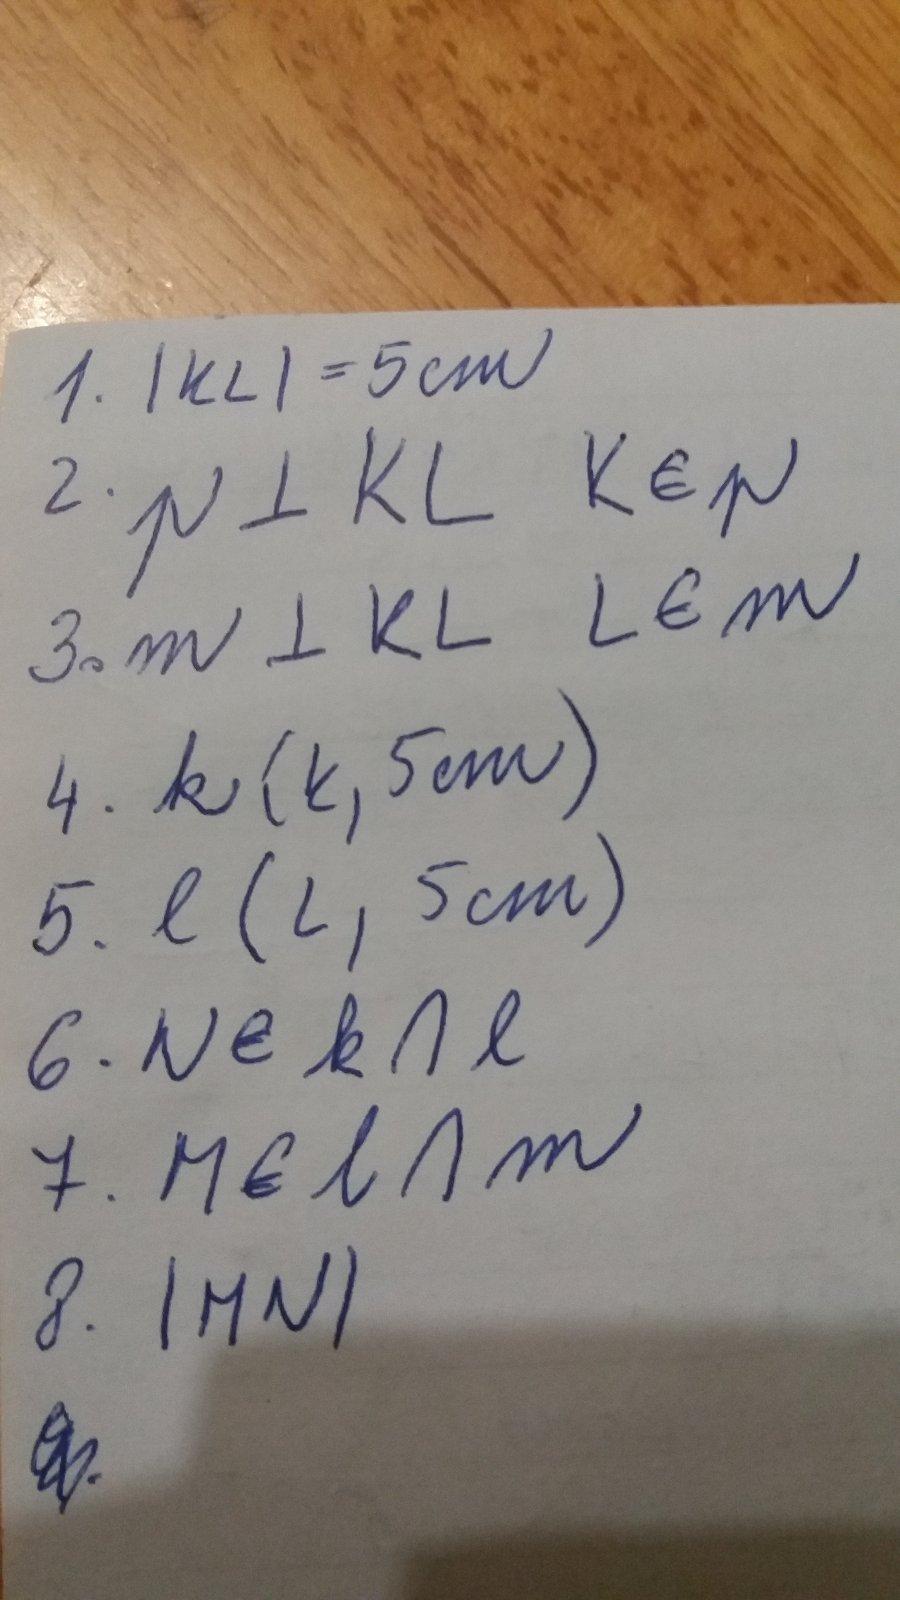 1. |KL| = 5cm
2. p ⊥ KL K ∈ p
3. m ⊥ KL L ∈ m
4. k (k, 5cm)
5. l (L, 5cm)
6. N ∈ k ∩ l
7. M ∈ l ∩ m
8. |MN|